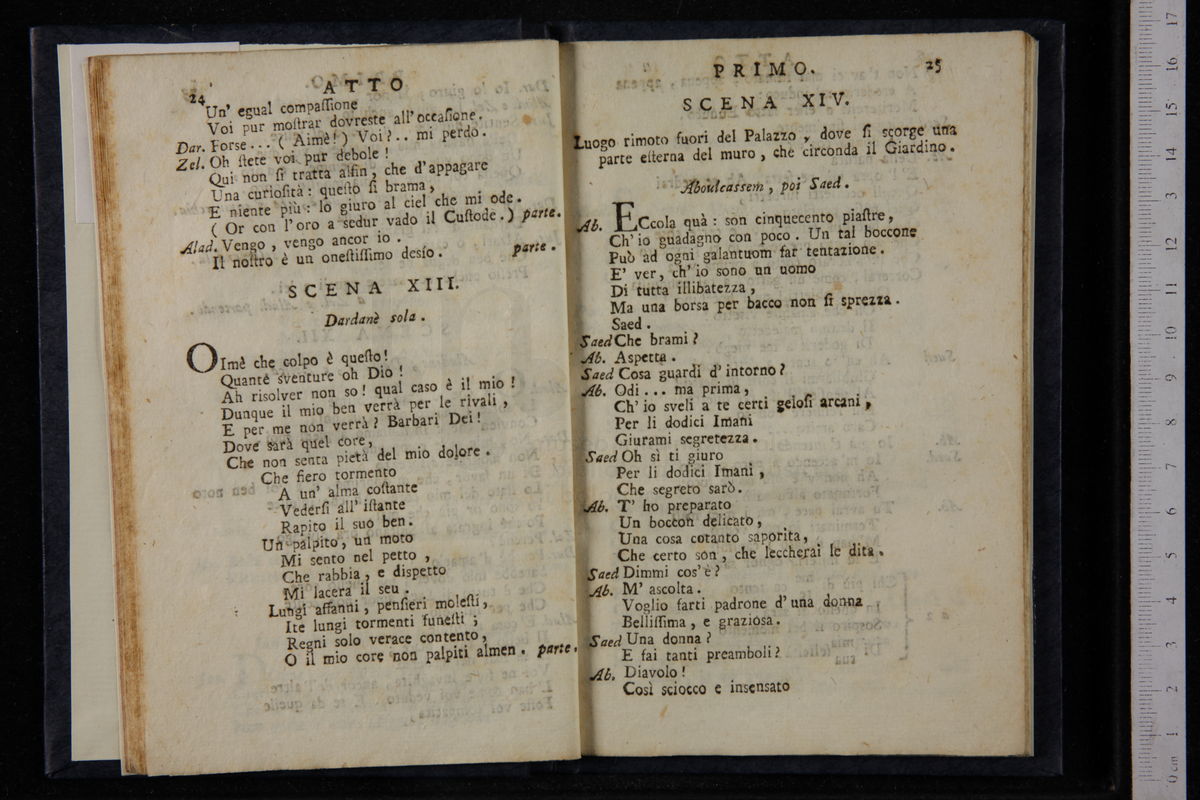 24
ATTO
Un' egual compaſſione
Voi pur moſtrar dovreste all'occaſione.
Dar. Forse... ( Aimè! ) Voi?.. mi perdo.
Zel. Oh ſtete voi pur debole!
Qui non ſi tratta alfin, che d'appagare
Una curioſità: queſto ſi brama,
E niente più: lo giuro al ciel che mi ode.
( Or con l'oro a sedur vado il Cuſtode. ) parte.
Alad. Vengo, vengo ancor io.
Il noſtro è un oneſtiſſimo desío. parte.
SCENA XIII.
Dardanè sola.
OImè che colpo è queſto!
Quante sventure oh Dio!
Ah risolver non so! qual caso è il mio!
Dunque il mio ben verrà per le rivali,
E per me non verrà? Barbari Dei!
Dove sarà quel core,
Che non senta pietà del mio dolore.
Che fiero tormento
A un' alma coſtante
Vederſi all' iſtante
Rapito il suo ben.
Un palpito, un moto
Mi sento nel petto,
Che rabbia, e dispetto
Mi lacera il seu.
Lungi affanni, penſieri moleſti,
Ite lungi tormenti funeſti;
Regni solo verace contento,
O il mio core non palpiti almen. parte.
PRIMO.
25
SCENA XIV.
Luogo rimoto fuori del Palazzo, dove ſi scorge una
parte eſterna del muro, che circonda il Giardino.
Aboulcassem, poi Saed.
Ab. ECcola quà: son cinquecento piaſtre,
Ch' io guadagno con poco. Un tal boccone
Può ad ogni galantuom far tentazione.
E' ver, ch' io sono un uomo
Di tutta illibatezza,
Ma una borsa per bacco non ſi sprezza.
Saed.
Saed Che brami?
Ab. Aspetta.
Saed Cosa guardi d' intorno?
Ab. Odi... ma prima,
Ch' io sveli a te certi geloſi arcani,
Per li dodici Imani
Giurami segretezza.
Saed Oh sì ti giuro
Per li dodici Imani,
Che segreto sarò.
Ab. T' ho preparato
Un boccon delicato,
Una cosa cotanto saporita,
Che certo son, che leccherai le dita.
Saed Dimmi cos' è?
Ab. M' ascolta.
Voglio farti padrone d' una donna
Belliſſima, e graziosa.
Saed Una donna?
E fai tanti preamboli?
Ab. Diavolo!
Così sciocco e insensato